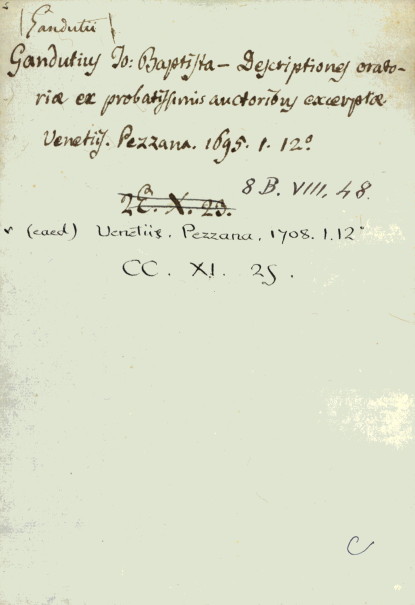 Gandutii
Gandutius Io: Baptista – Descriptiones orato-
riæ ex probatissimis auctoribus excerptæ
Venetijs. Pezzana. 1695. 1. 12.º
8 B. VIII. 48.
2E. X. 29.
(eaed) Venetiis. Pezzana. 1708. 1. 12º
CC. XI. 25.
C